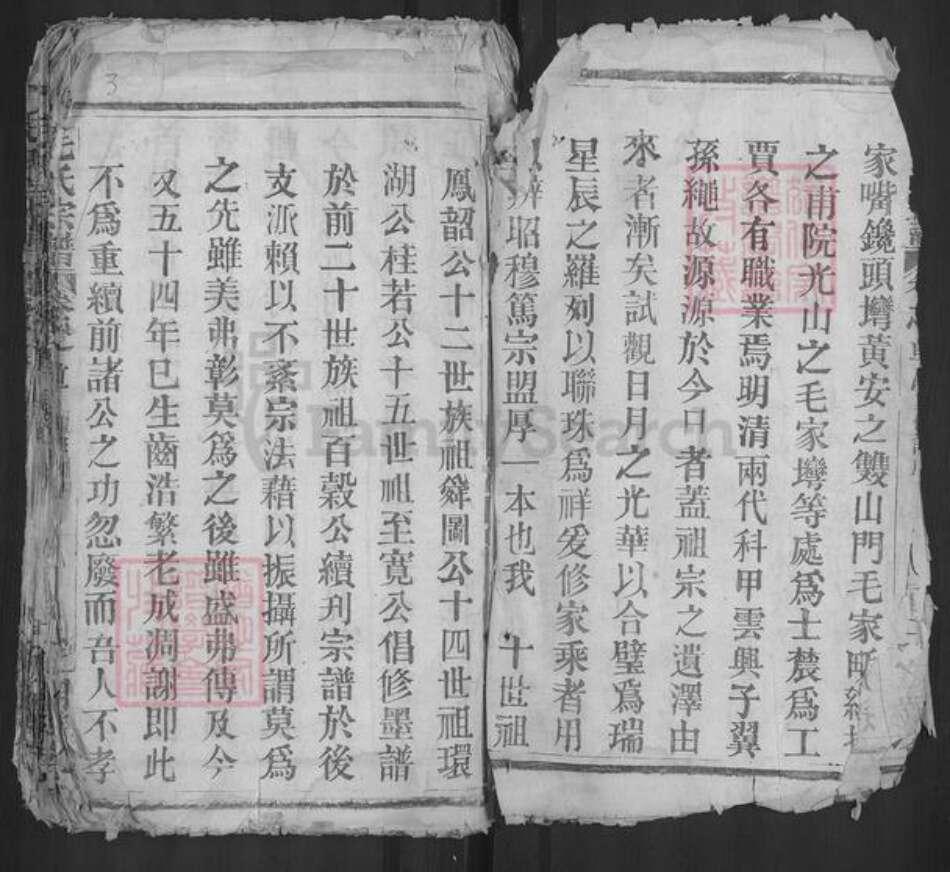 家嘴鑱頭塆黃安之雙山門毛家
之甫院光山之毛家塆等處爲士農爲工
賈各有職業焉明清兩代科甲雲興子翼
孫繩故源源於今日者蓋祖宗之遺澤由
來者漸矣試觀日月之光華以合璧爲瑞
星辰之羅列以聯珠爲祥爰修家乘者用
辨昭穆篤宗盟厚一本也我 十世祖
鳳韶公十二世族祖舜圖公十四世祖環
湖公桂若公十五世祖至寛公倡修墨譜
於前二十世族祖百穀公續刋宗譜於後
支派賴以不紊宗法藉以振攝所謂莫爲
之先雖美弗彰莫爲之後雖盛弗傳及今
又五十四年已生齒浩繁老成凋謝即此
不爲重續前諸公之功忽廢而吾人不孝
毛氏宗譜
3
FamilySearch